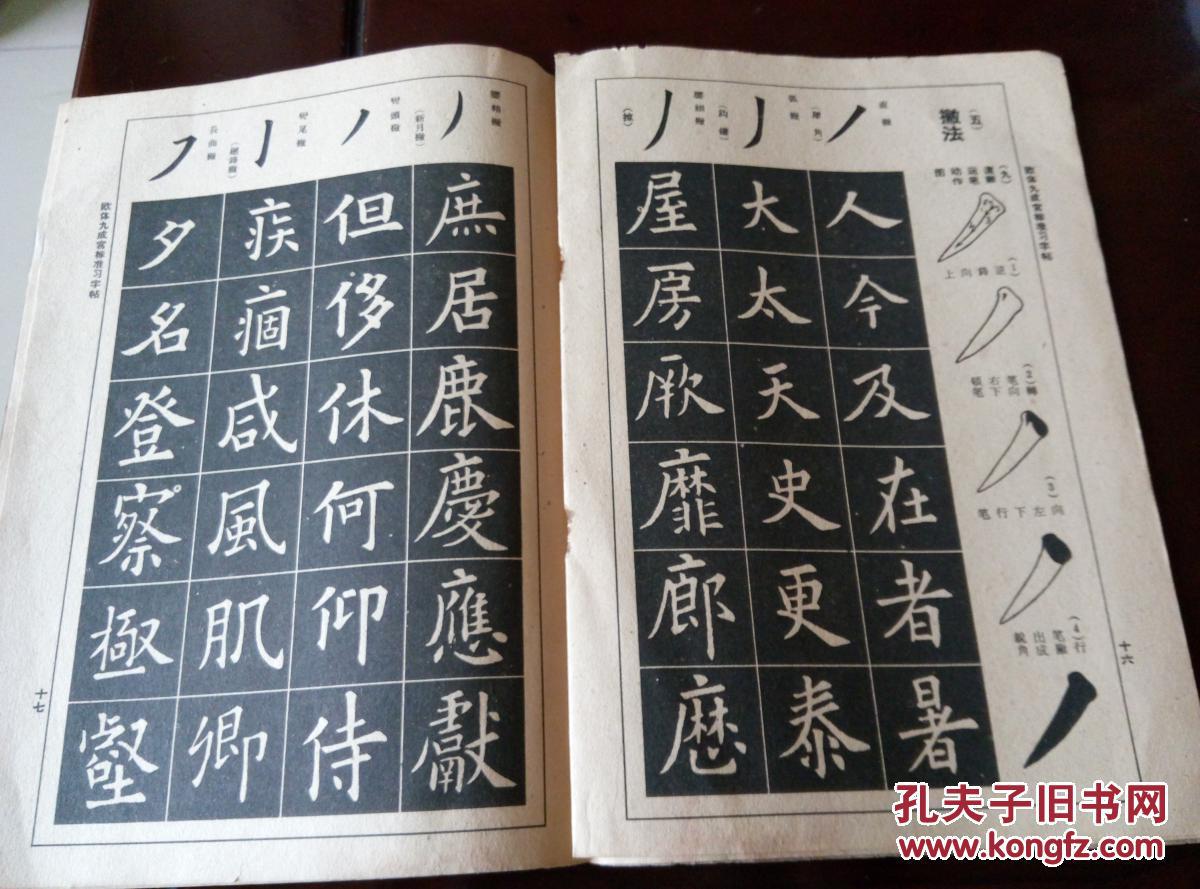 欧体九成宫标准习字帖
十六
(五)
撇法
(九)
直撇
运笔
动作
图
(1)
逆鋒向上
(2)轉
笔向下
右
頓笔
(3)
向左下行笔
(4)行
笔撇
出成
銳角
直撇
(犀角)
弧撇
腰細撇
人今及在者暑
大太天史更泰
屋房厥靡廊歷
腰粗撇
(新月撇)
彎頭撇
彎尾撇
長曲撇
庶居鹿慶應獻
但侈休何仰侍
疾痼咸風肌卿
夕名登察極壑
欧体九成宫标准习字帖
十七
孔夫子旧书网
www.kongfz.com